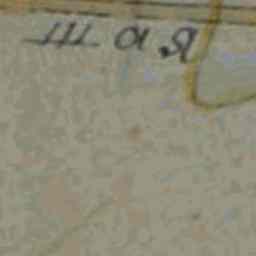 шая